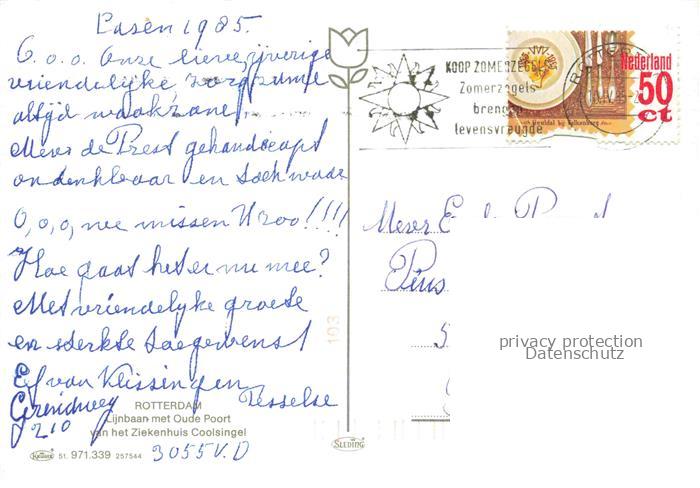 Pasen 1985.
O.o.o. Onze lieve, ijverige
vriendelijke, zorgzame
altijd waakzame
Mevr de Prest gehandicapt
ondenkbaar en toch waar
O,o,o, we missen U zoo!!!!
Hoe gaat het er nu mee?
Met vriendelijke groete
en sterkte toegewenst
Ef van Vlissingen
Tesselse
210
3055 V.D
ROTTERDAM
Lijnbaan met Oude Poort
van het Ziekenhuis Coolsingel
51. 971.339 257544
103
SLEDING
KOOP ZOMERZEGELS
Zomerzegels
brengen
levensvreugde
Nederland
50
ct
Mevr E
Pius
privacy protection
Datenschutz